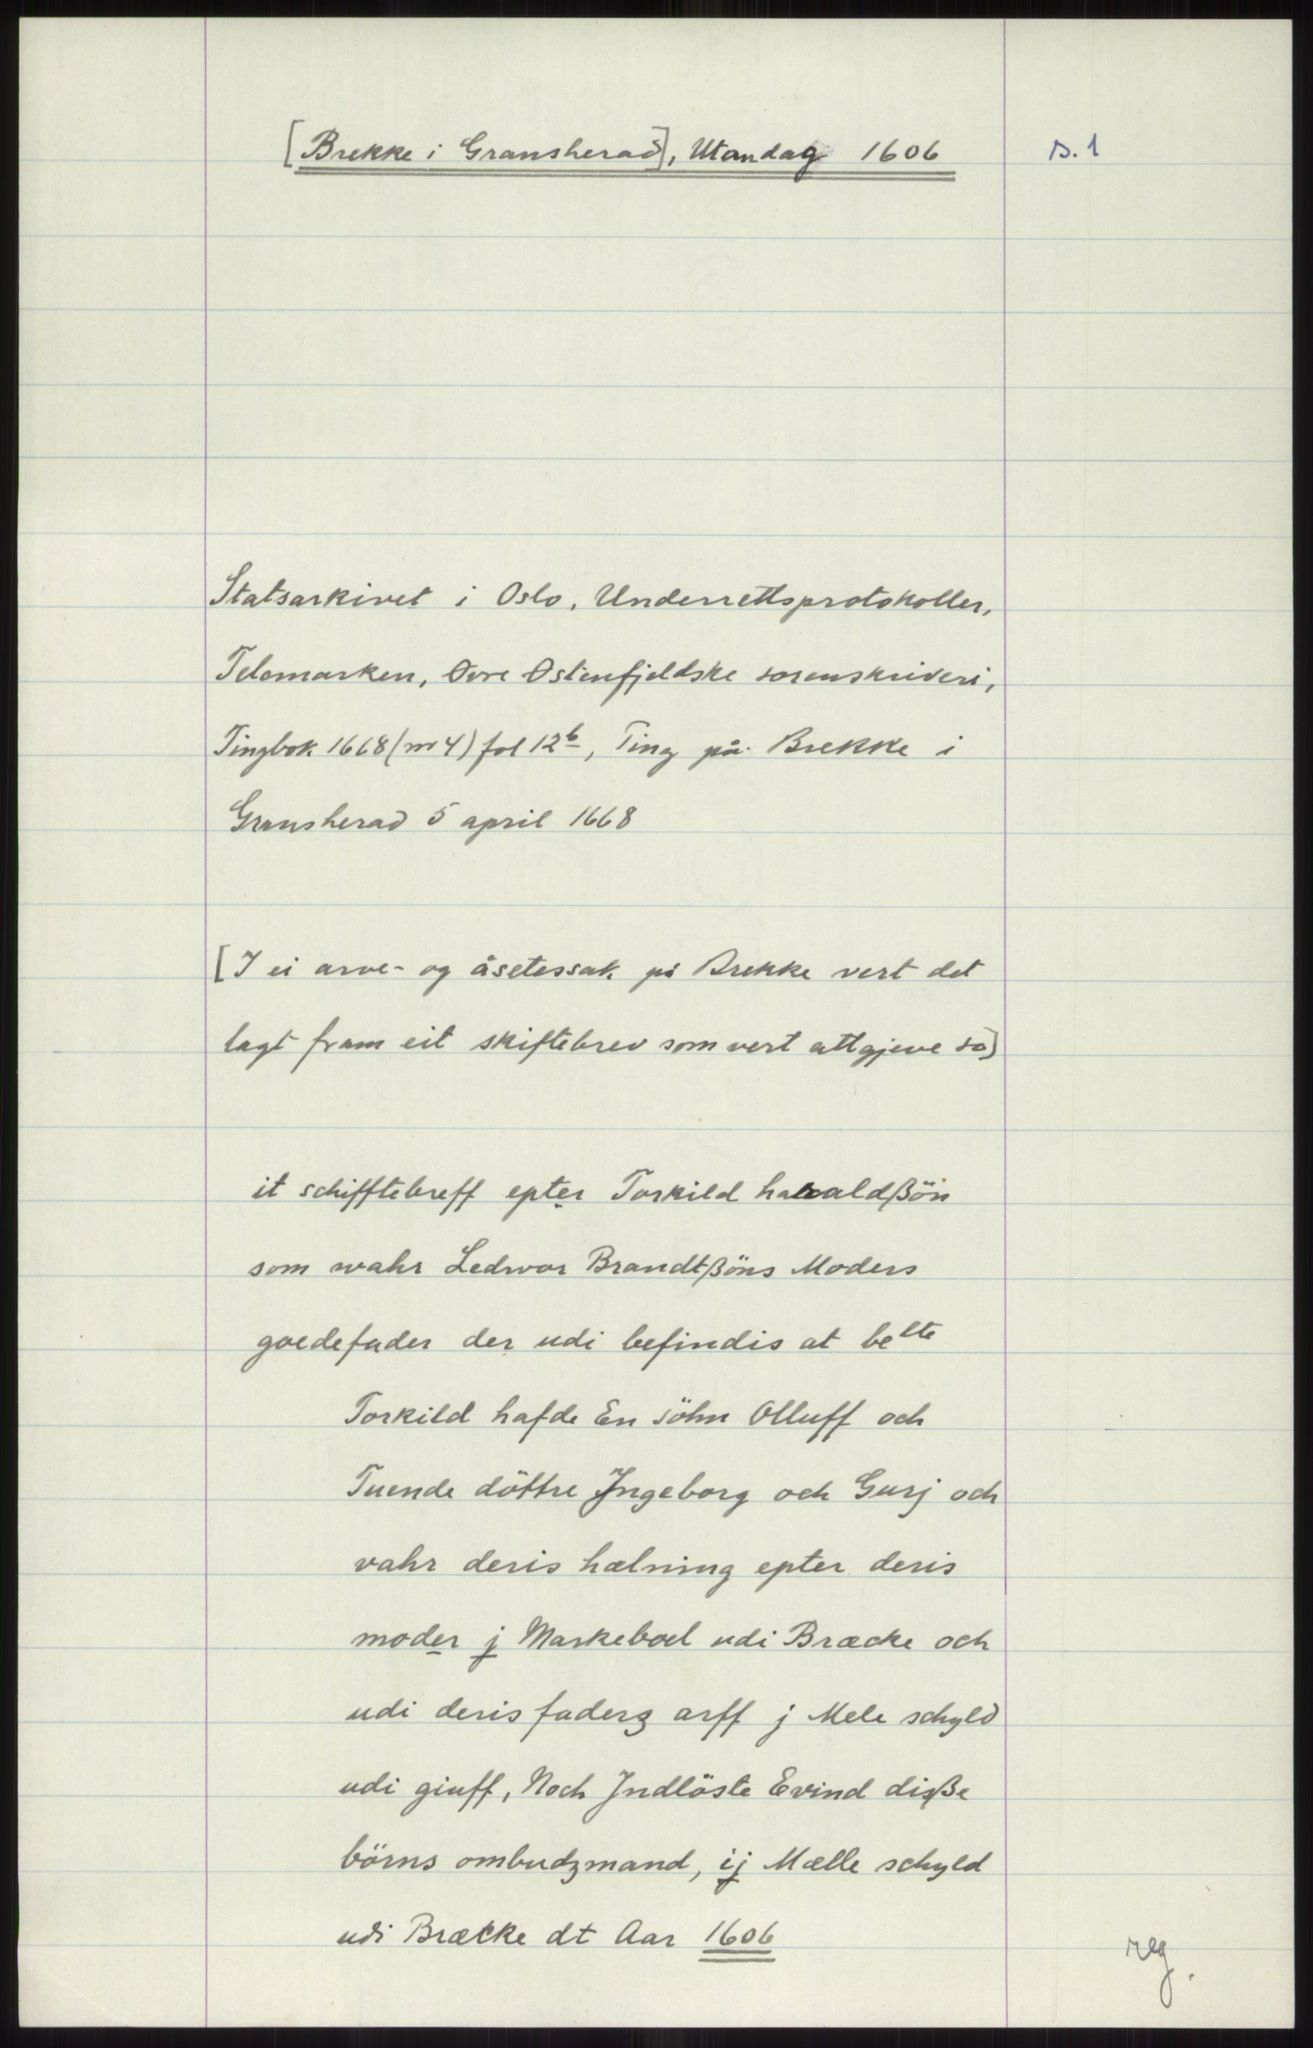 [Brekke i Gransherad], Utandag 1606
s. 1
Statsarkivet i Oslo, Underrettsprotokoller,
Telemarken, Övre Östenfjeldske sorenskriveri,
Tingbok 1668 (nr 4) fol 12b, Ting på Brekke i
Gransherad 5 april 1668
[I ei arve- og åsetessak på Brekke vert det
lagt fram eit skiftebrev som vert attgjeve so]
it schifftebreff epter Torkild haraldßön
som wahr Ledwor Brandtßöns Moders
goedefader der udi befindis at belte
Torkild hafde En söhn Olluff och
Tuende döttre Ingeborg och Gurj och
vahr deris hælning epter deris
moder j Markeboel udi Bræcke och
udi deris faderz arff j Mele schyld
udi giuff, Noch Jndlöste Evind diße
börns ombudzmand, ij Mælle schyld
udi Bræcke dt Aar 1606
reg.